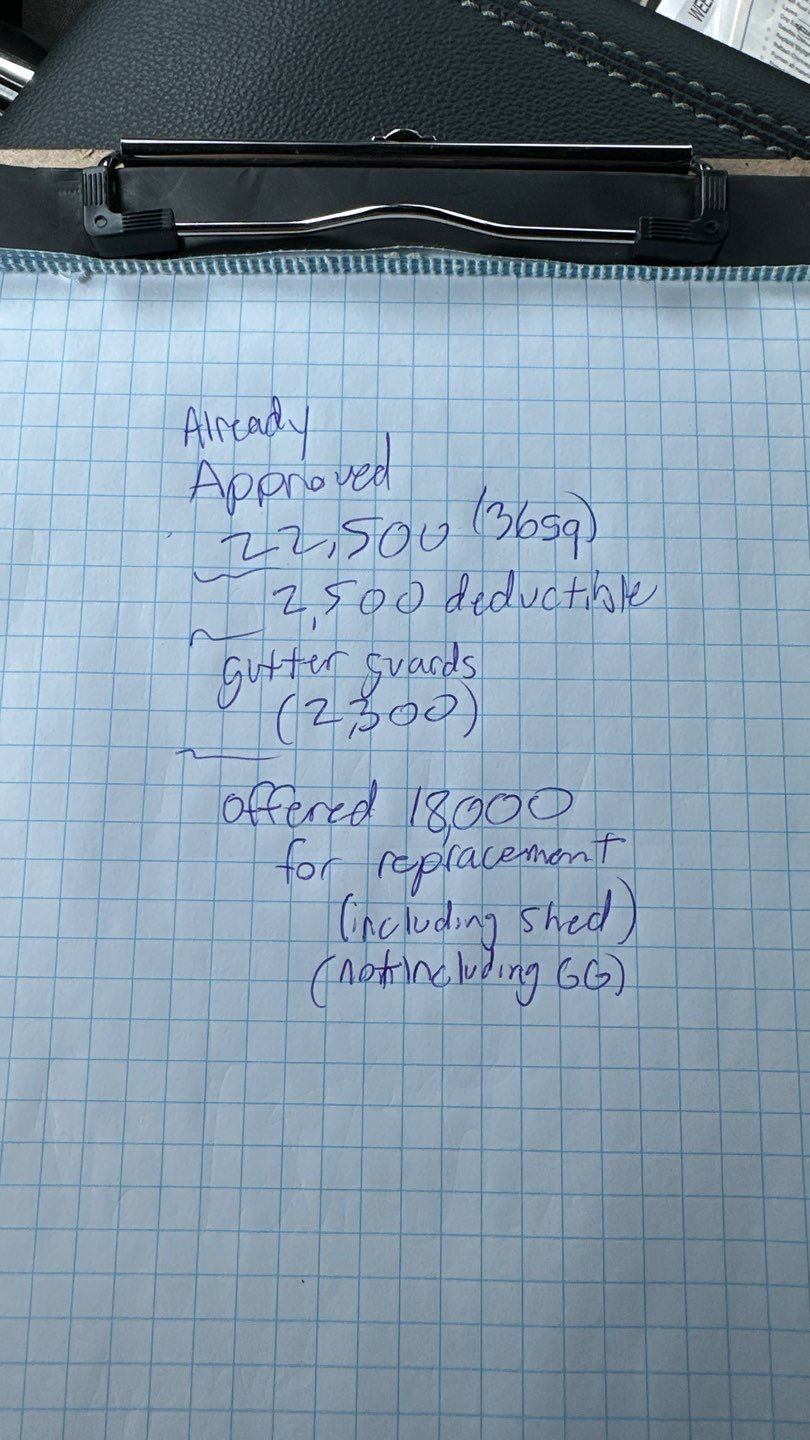 WEE
Already
Approved
22,500 (36sq)
2,500 deductible
gutter guards
(2,300)
offered 18,000
for replacement
(including shed)
(not including GG)